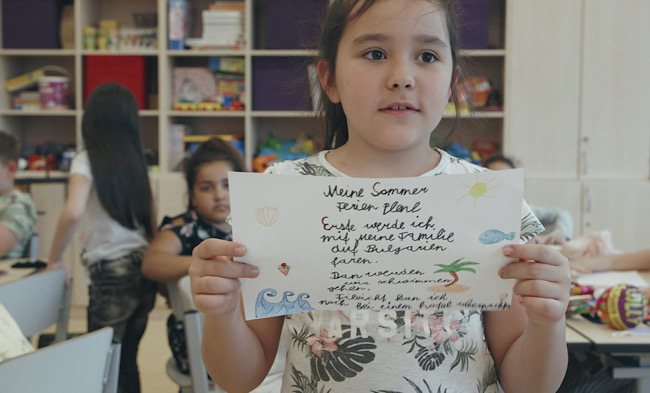 Meine Sommer
Ferien
Erste werde ich
mit meine Familie
auf Bulgarien
faren.
Dan weuden
wir schwimmen
gehen.
kan ich
noch bei einem